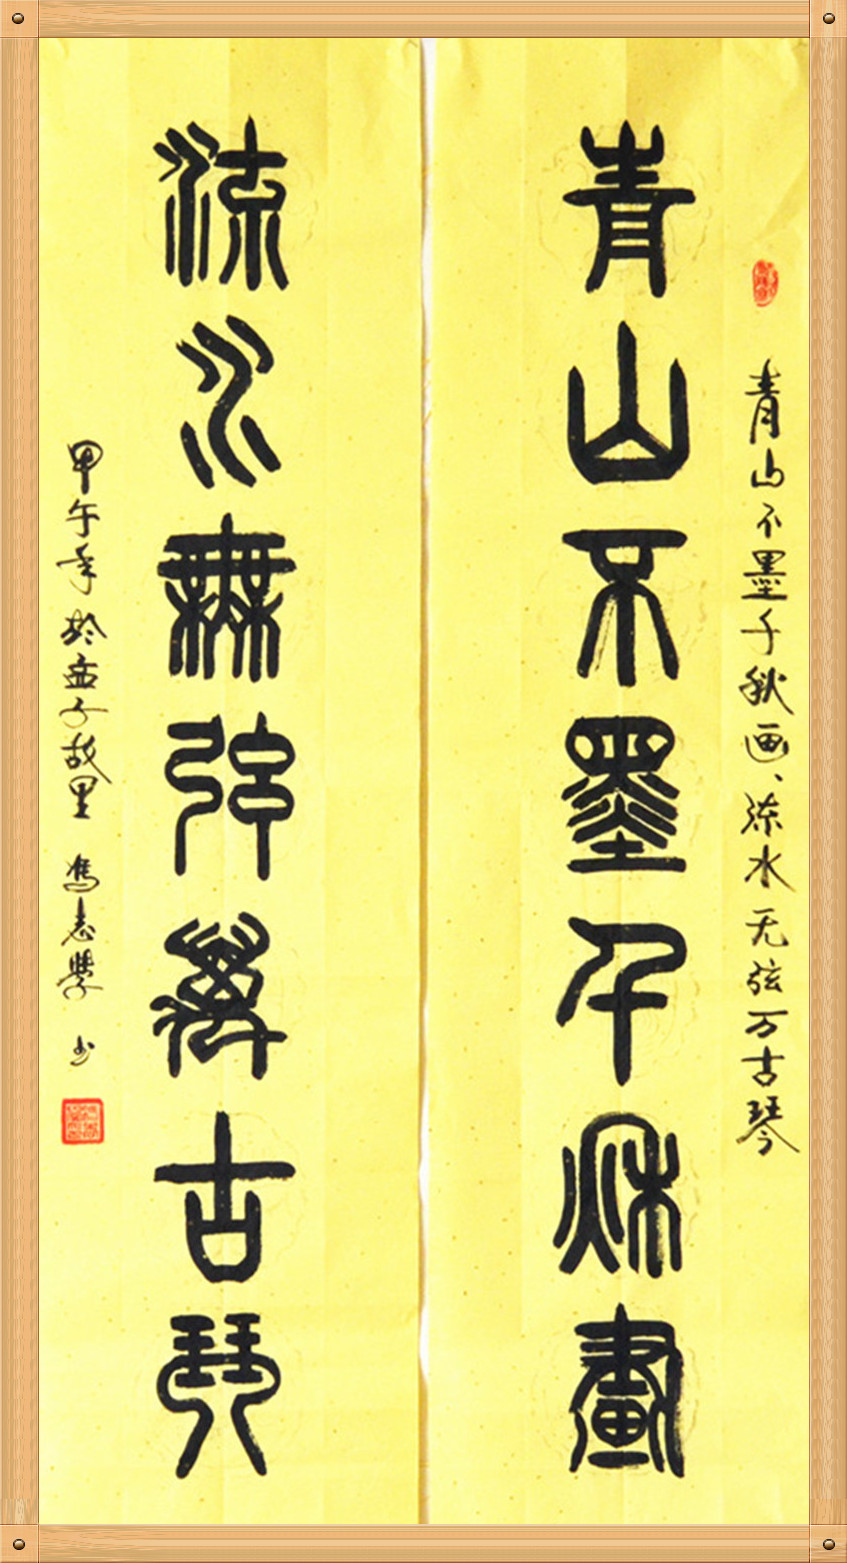 青山不墨千秋画、流水无弦万古琴
青山不墨千秋畫
流水無弦萬古琴
甲午年於孟子故里 馮志學 书